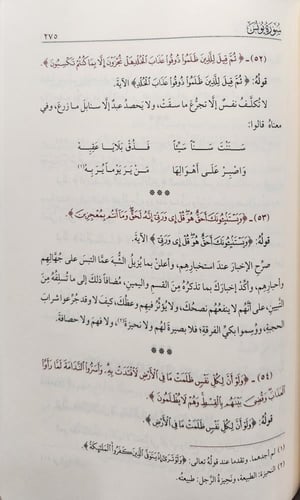 سورة يونس
٢٧٥
(٥٢) - ﴿ثُمَّ قِيلَ لِلَّذِينَ ظَلَمُوا ذُوقُوا عَذَابَ الْخُلْدِ هَلْ تُجْزَوْنَ إِلَّا بِمَا كُنْتُمْ تَكْسِبُونَ﴾.
قوله: ﴿ثُمَّ قِيلَ لِلَّذِينَ ظَلَمُوا ذُوقُوا عَذَابَ الْخُلْدِ﴾ الآية.
لا تُكلَّف نفسٌ إلا تجرُّعَ ما سقَتْ، ولا يحصد عبدٌ إلا سنابلَ ما زرع، وفي
معناه قالوا:
سَنَنْتَ سَنَنًا سَيِّئًا فَذُقْ بَلَايَا عَقِبِهْ
وَاصْبِرْ عَلَى أَهْوَالِهَا مَنْ بَرَّ يَوْمًا بُرَّ بِهْ(١)
***
(٥٣) - ﴿وَيَسْتَنْبِئُونَكَ أَحَقٌّ هُوَ قُلْ إِي وَرَبِّي إِنَّهُ لَحَقٌّ وَمَا أَنْتُمْ بِمُعْجِزِينَ﴾.
قوله: ﴿وَيَسْتَنْبِئُونَكَ أَحَقٌّ هُوَ قُلْ إِي وَرَبِّي﴾ الآية.
صرِّح الإخبار عندَ استخبارهم، وأعلن بما يزيل الشُّبهَ عمَّا التبس على جُهَّالهم
وأحبارهم، وأكِّد إخبارك بما تذكره من القسم واليمين، مُضافًا ذلك إلى ما تُسلِفُه من
التبيين، على أنَّهم لا ينفعُهم نصحُك، ولا يُؤثِّر فيهم وعظُك، كيف لا وقد جُرِّعوا شرابَ
الحجبة، ووُسِموا بكيِّ الفرقة؛ فلا بصيرةَ لهم ولا نحيزة(٢)، ولا فهمَ ولا حصافة.
***
(٥٤) - ﴿وَلَوْ أَنَّ لِكُلِّ نَفْسٍ ظَلَمَتْ مَا فِي الْأَرْضِ لَافْتَدَتْ بِهِ وَأَسَرُّوا النَّدَامَةَ لَمَّا رَأَوُا
الْعَذَابَ وَقُضِيَ بَيْنَهُمْ بِالْقِسْطِ وَهُمْ لَا يُظْلَمُونَ﴾.
قوله: ﴿وَلَوْ أَنَّ لِكُلِّ نَفْسٍ ظَلَمَتْ مَا فِي الْأَرْضِ﴾.
(١) لم أجدهما، وتقدما عند قوله تعالى: ﴿وَلَوْ تَرَى إِذْ يَتَوَفَّى الَّذِينَ كَفَرُوا الْمَلَائِكَةُ﴾
(٢) النحيزة: الطبيعة، ونحيزة الرَّجل: طبيعته.